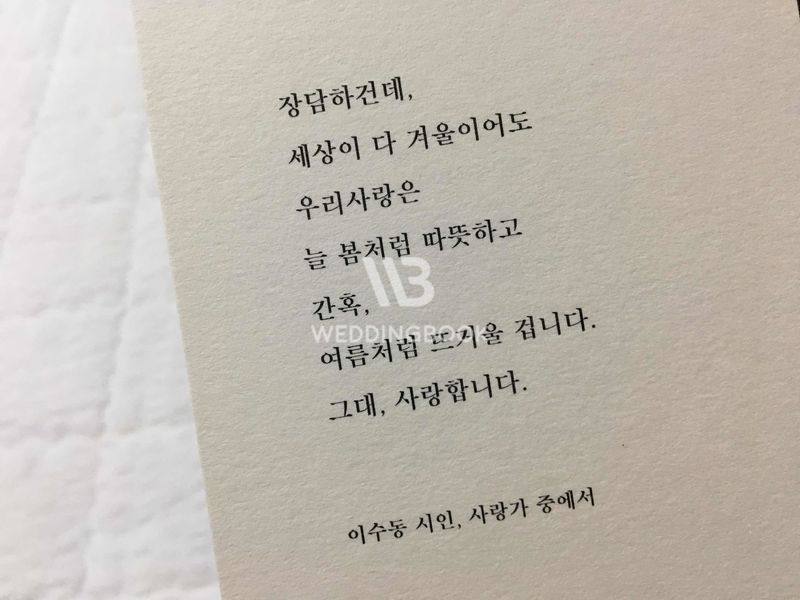 장담하건데,
세상이 다 겨울이어도
우리사랑은
늘 봄처럼 따뜻하고
간혹,
WEDDINGBOOK
여름처럼 뜨거울 겁니다.
그대, 사랑합니다.
이수동 시인, 사랑가 중에서